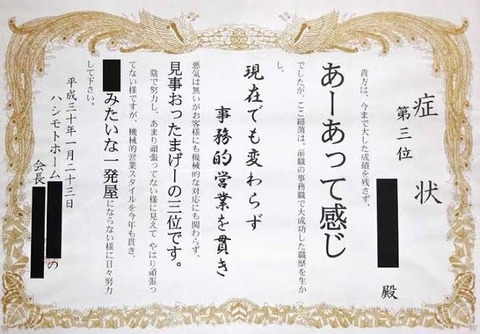 症状
第三位
殿
貴方は、今まで大した成績を残さず、
あーあって感じ
でしたが、ここ細薄は、前職の事務職で大成功した職歴を生か
し、
現在でも変わらず
事務的営業を貫き
悪気は無いがお客様にも機械的な対応にも関わらず、
見事おったまげーの三位です。
陰で努力し、あまり頑張ってない様に見えて やはり頑張っ
てない様ですが、機械的営業スタイルを今年も貫き、
みたいな一発屋にならない様に日々努力
して下さい。
平成三十年一月二十三日
ハシモトホーム
の
会長